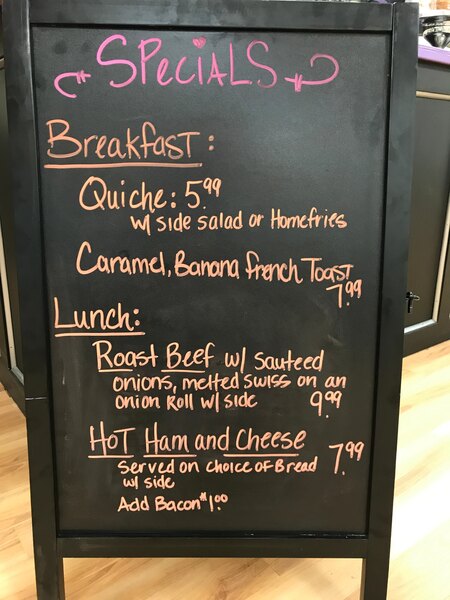 SPeciALS
Breakfast:
Quiche: 5.99
w/ side salad or Homefries
Caramel, Banana french Toast
7.99
Lunch:
Roast Beef w/ sauteed
onions, melted swiss on an
onion Roll w/ side 9.99
HoT Ham and Cheese
Served on choice of Bread 7.99
w/ side
Add Bacon $1.00